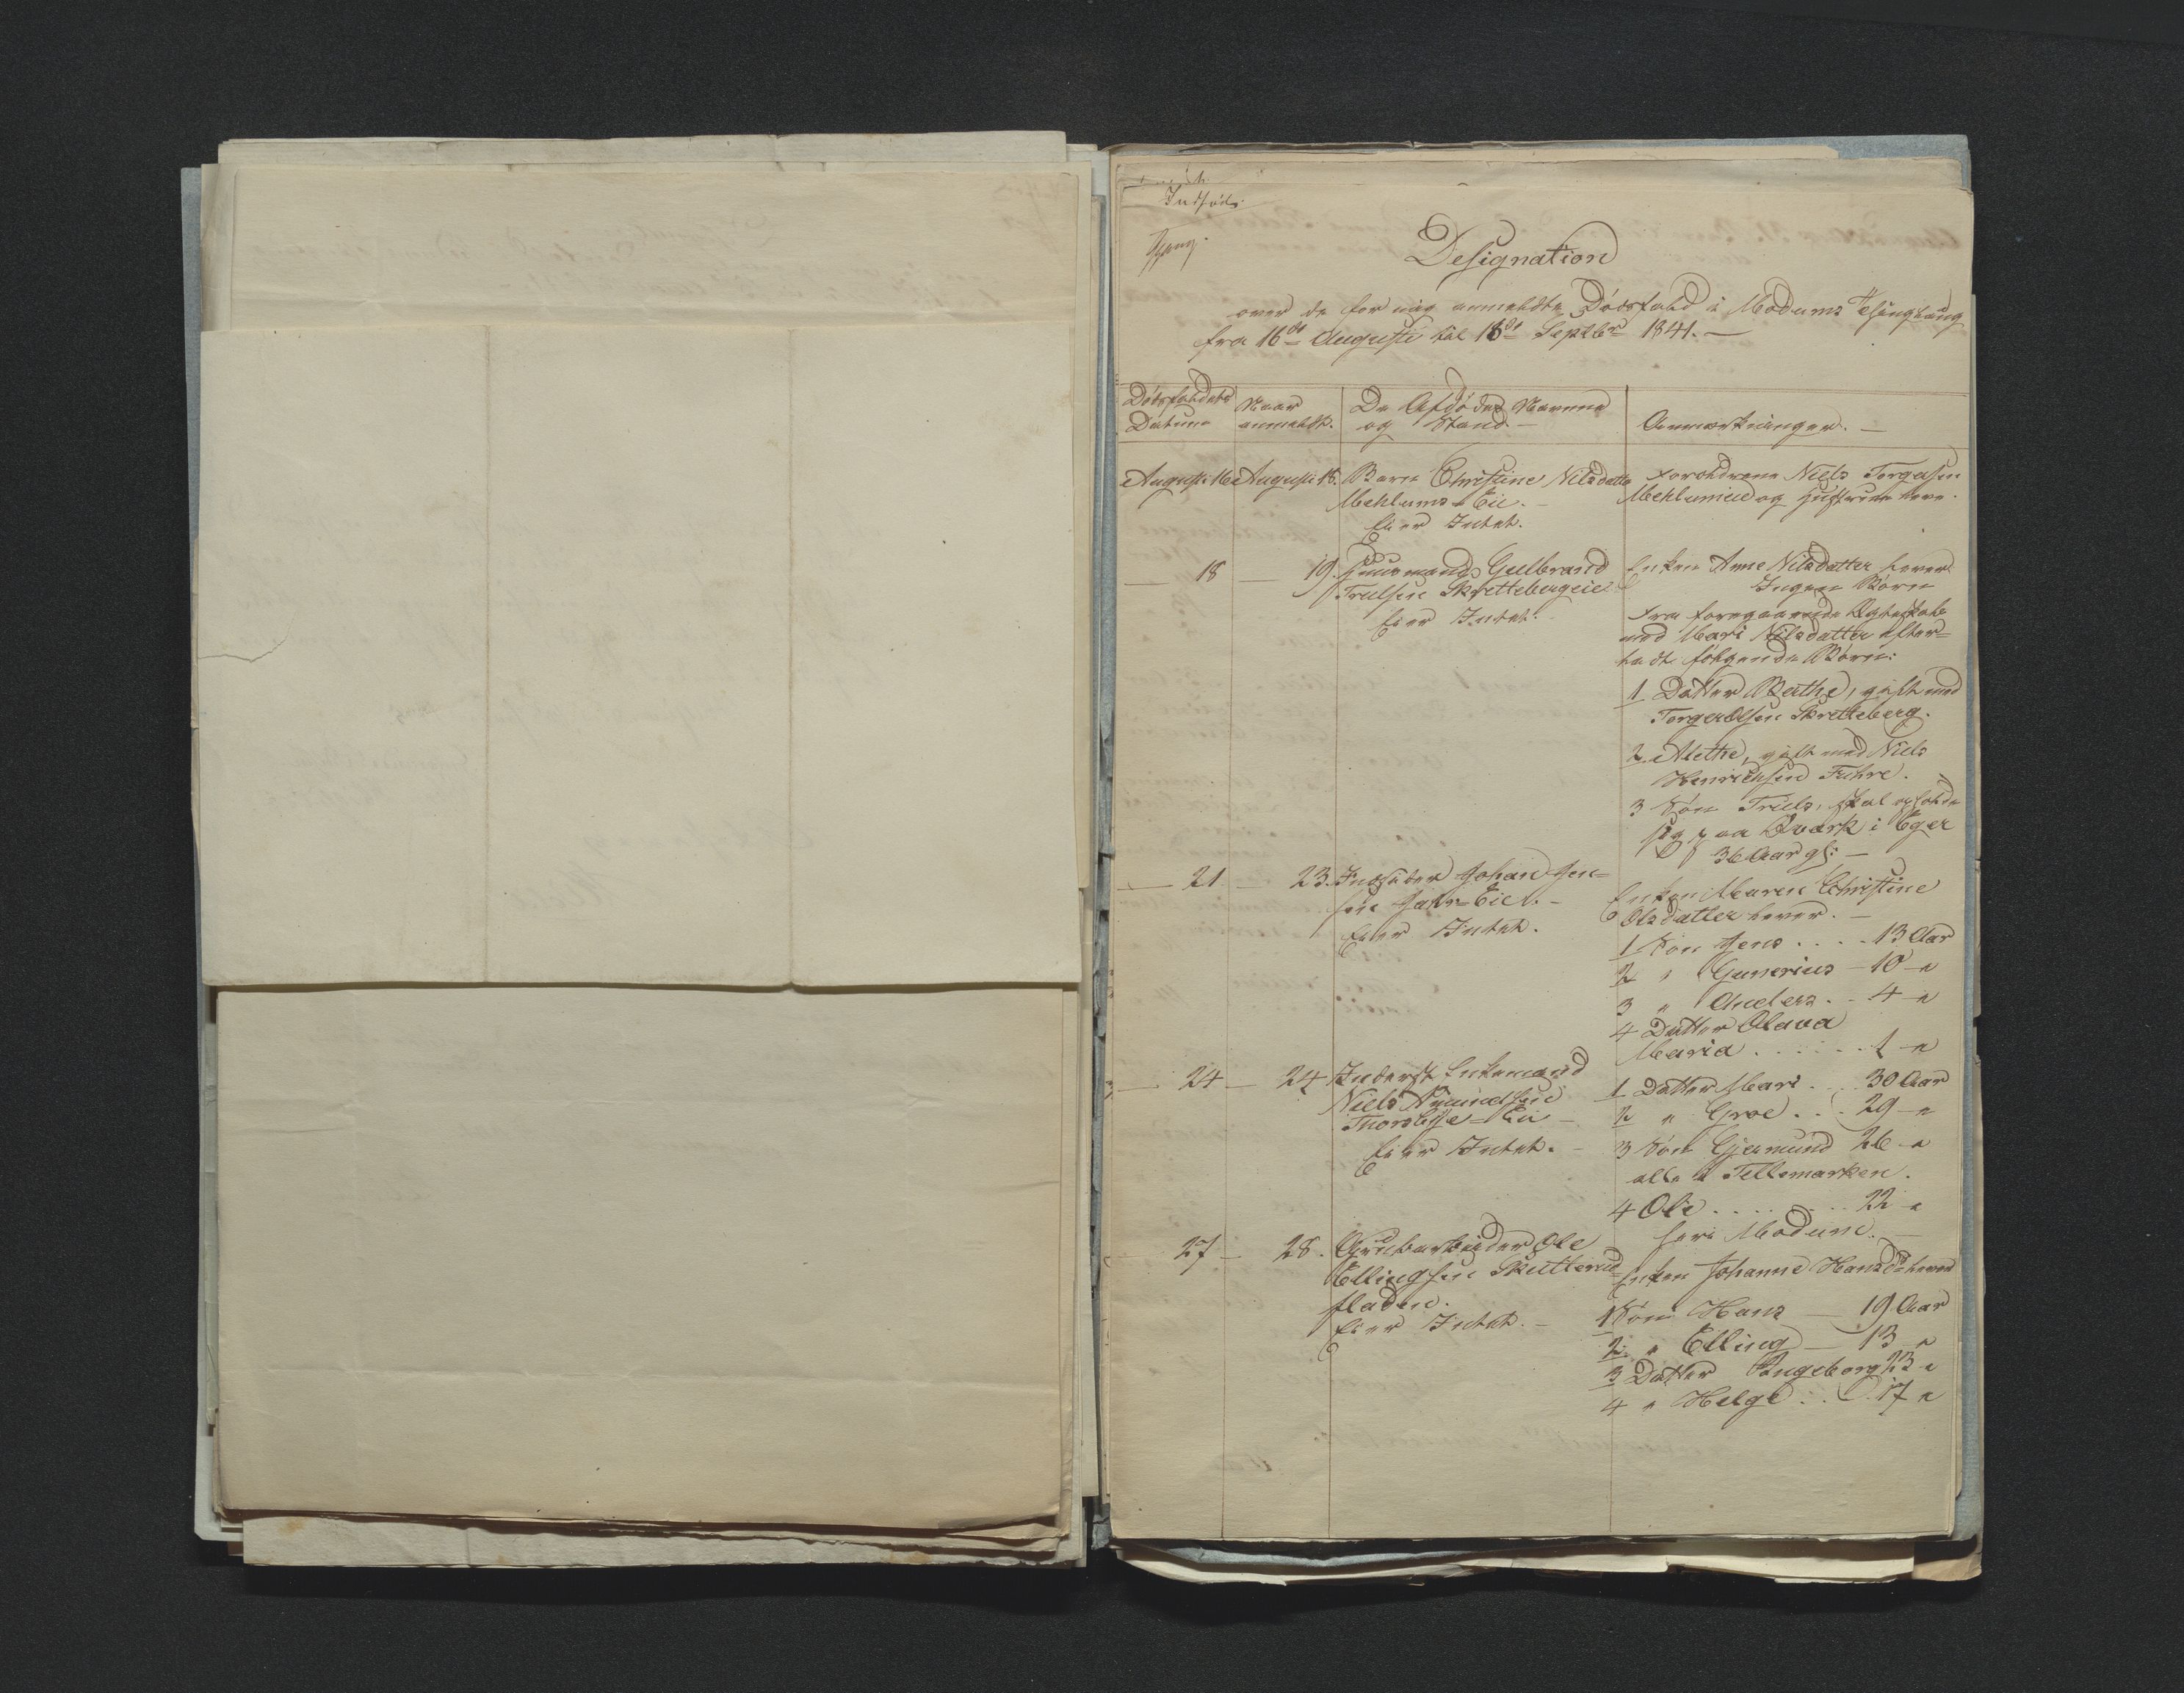 Indført
Designation
over de for mig anmeldte Dødsfald i Modums Thinglaug
fra 16de Augusti til 18de Septbr 1841. —
Dødsfaldets
Datum
Naar
anmeldt.
De Afdødes Navne
og Stand. —
Anmærkninger. —
Augusti 16 Augusti 18. Barn Christine Nilsdatter
Mehlums Eie. —
Eier Intet.
Forældrene Niels Torgersen
Mehlumeie og Hustrue leve.
— 18 — 19. Huusmand Gulbrand
Trulsen Skrettebergeie
Eier Intet.
Enken Anne Nilsdatter lever
Ingen Børn
Fra foregaaende Ægteskab
med Mari Nilsdatter efter=
ladt følgende Børn:
1 Datter Berthe, gift med
Torger Olsen Skretteberg.
2 Alethe, gift med Niels
Henriksen Fuhre.
3 Søn Truls, skal opholde
sig paa Qværk i Eger
36 Aar gl: —
— 21 — 23. Indsidder Johan Jen=
sen Jahr=Eie. —
Eier Intet.
Enken Maren Christine
Olsdatter lever. —
1 Søn Jens . . . . 13 Aar
2 " Gunerius — 10 — "
3 " Anders . . 4 — "
4 Datter Olava
Maria . . . . . . 1 — "
— 24 — 24 Inderst Enkemand
Niels
Eie —
Eier Intet. —
1 Datter Mari . . . 30 Aar
2 " Groe . . . 29 — "
3 Søn Gjermund 26 — "
alle i Tellemarken.
4 Ole . . . . . . . . 22 — "
her i Modum.
27 — 28. Grubearbeider Ole
Ellingsen Skutterud=
fladen.
Eier Intet. —
Enken Johanne Hansdr lever
1 Søn Hans — 19 Aar
2 " Elling — 13 — "
3 Datter Ingeborg 23 — "
4 " Helge . . . 17 "